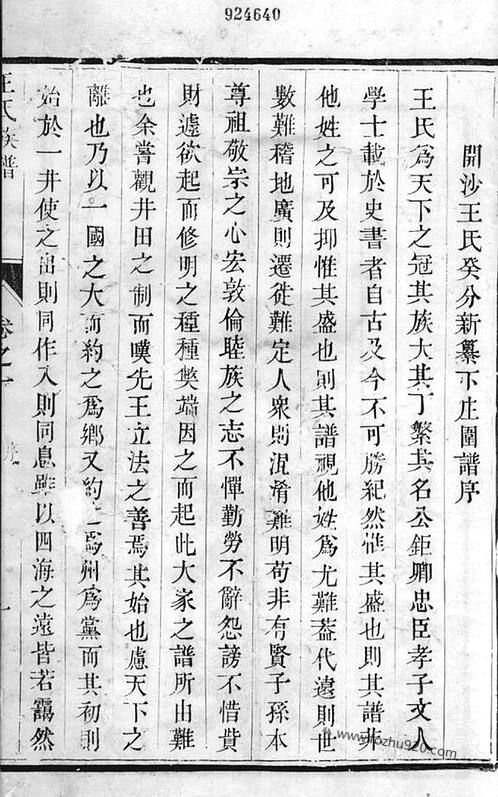 924640
開沙王氏癸分新纂下庄圍譜序
王氏爲天下之冠其族大其丁繁其名公鉅卿忠臣孝子文人
學士載於史書者自古及今不可勝紀然惟其盛也則其譜非
他姓之可及抑惟其盛也則其譜視他姓爲尤難葢代遠則世
數難稽地廣則遷徙難定人衆則混肴難明苟非有賢子孫本
尊祖敬宗之心宏敦倫睦族之志不憚勤勞不辭怨謗不惜貲
財遽欲起而修明之種種獘端因之而起此大家之譜所由難
也余嘗觀井田之制而嘆先王立法之善焉其始也慮天下之
離也乃以一國之大而約之爲鄉又約之爲州爲黨而其初則
始於一井使之出則同作入則同息雖以四海之遠皆若靄然
王氏族譜
卷之一
序
一
www.fozhu920.com